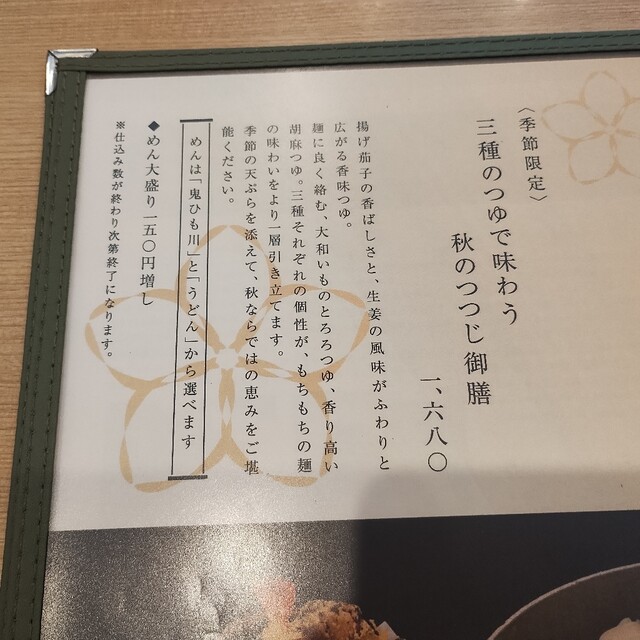 〈季節限定〉
三種のつゆで味わう
秋のつつじ御膳
一、六八〇
揚げ茄子の香ばしさと、生姜の風味がふわりと
広がる香味つゆ。
麺に良く絡む、大和いものとろろつゆ、香り高い
胡麻つゆ。三種それぞれの個性が、もちもちの麺
の味わいをより一層引き立てます。
季節の天ぷらを添えて、秋ならではの恵みをご堪
能ください。
めんは「鬼ひも川」と「うどん」から選べます
◆めん大盛り一五〇円増し
※仕込み数が終わり次第終了になります。